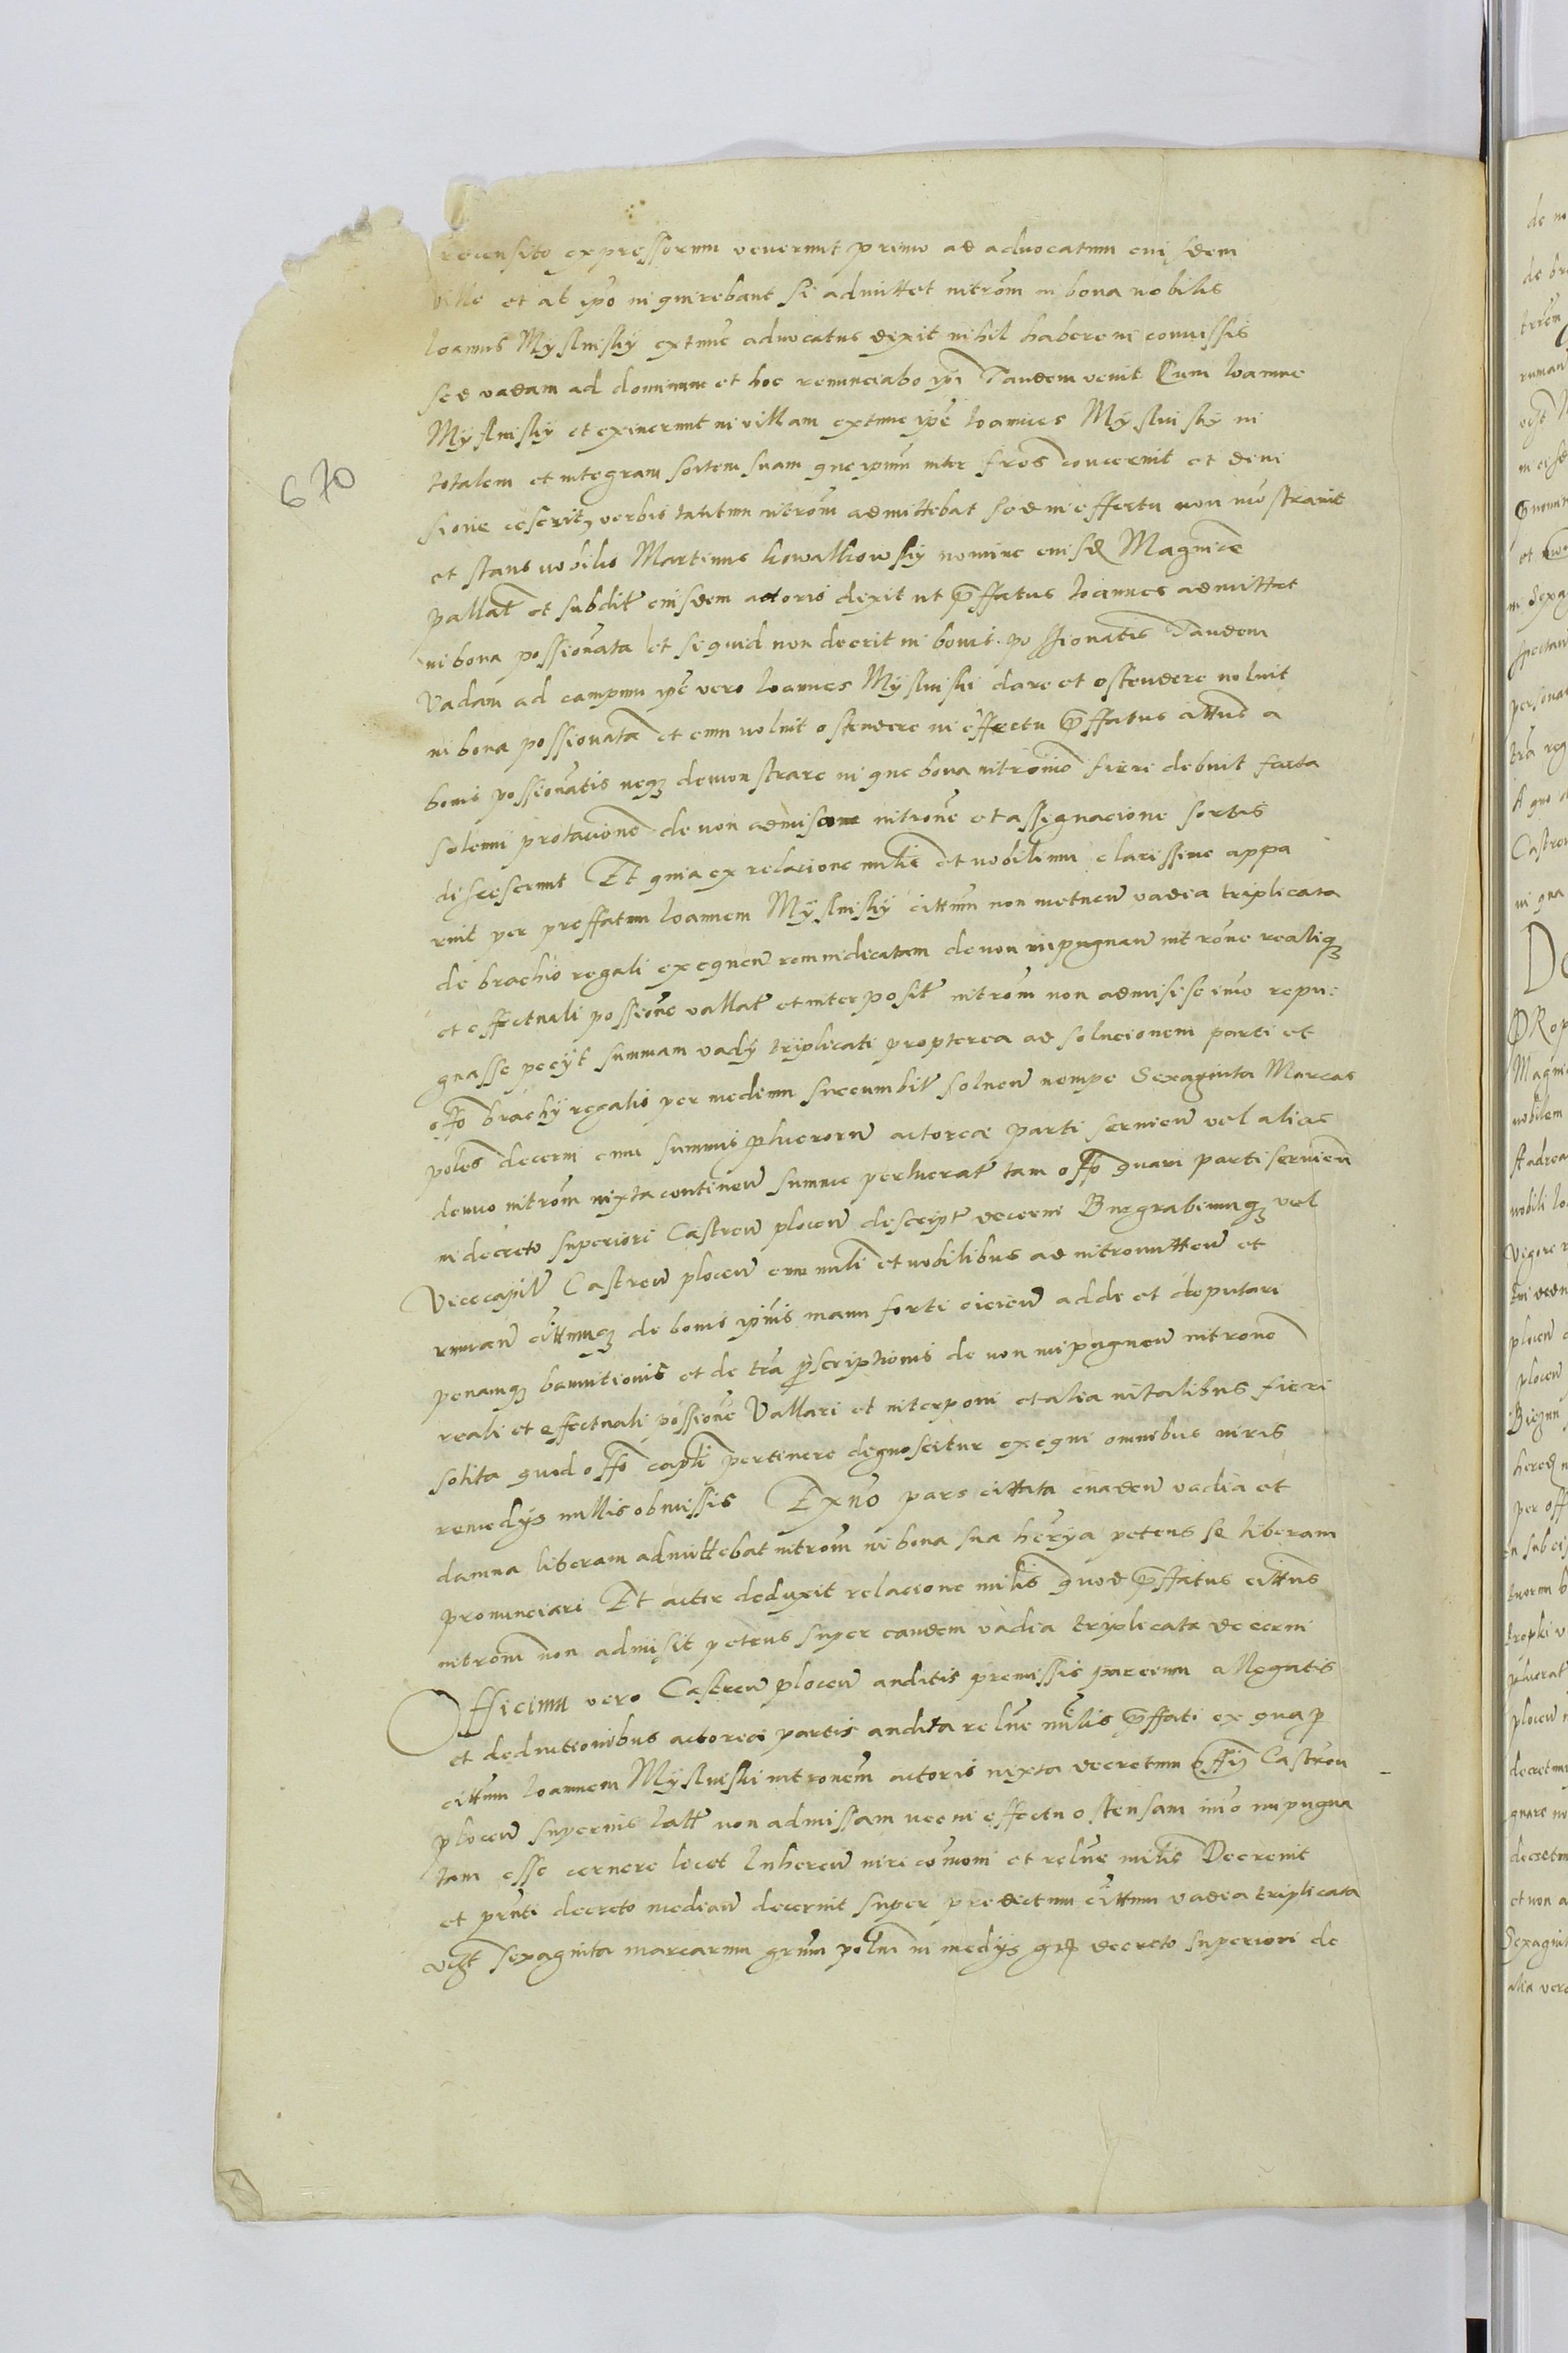 recensito expressorum venerunt primo ad advocatum eiusdem
ville et ab ipo inquirebant si admittet intrōm in bona nobilis
Ioannis Myslinsky extunc advocatus dixit nihil habere in comissis
sed vadam ad dominum et hoc renunciabo ipi Tandem venit Cum Ioanne
Myslinsky et exiuerunt in villam extunc ipē Ioannes Myslinsky in
totalem et integram sortem suam que ipsum inter frēs concernit et deui
670
sione cesserit, verbis tantum intrōm admittebat sed in effectu non monstravit
et stans nobilis Martinus Kowalkowsky nomine eiusd Magnice
pallat et subdit eiusdem actoris dixit ut p̄ffatus Ioannes admittat
in bona possionata et si quid non deerit in bonis possionatis Tandem
Vadam ad campum ipē vero Ioannes Myslinski dare et ostendere noluit
in bona possionata et cum noluit ostendere in effectu p̄ffatus cittus a
bonis possionatis neq demonstrare in que bona intromō fieri debuit facta
solenni protacione de non admissione intronē et assignacione sortis
discesserunt Et quia ex relacione mltis et nobilium clarissime appa
ruit per preffatum Ioannem Myslinsky cittum non metuen vadia triplicata
de brachio regali exequen rem iudicatam de non impugnan introne realiq
et effectuali possione vallat et interposit intrōm non admisisse imo repu:
gnasse peryt summam vadij triplicati propterea ad solucionem parti et
offo brachy regalis per medium succumbit soluen nempe Sexaginta Marcas
poles decerni cum summis plucrorum actoree parti seruien vel alias
denuo intrōm iuxta continen summe perlucrat tam offo quam parti seruien
in decreto superiori Castren plocen descript decerni Burgrabiumq vel
Vicecapit Castren plocen cum mlti et nobilibus ad intromitten et
ruman cittumq de bonis ipius manu forti eicien addi et deputari
penamq bannitionis et de trā p̄scriptionis de non impugnen introne
reali et effectuali possione Vallari et interponi et alia in talibus fieri
solita quod offo capli pertinere dignoscitur exequi omnibus iuris
remedys nullis obmissis Exno pars cittata euaden vadia et
damna liberam admittebat intrōm in bona sua herya petens se liberam
pronunciari Et actor deduxit relacione mltis quod p̄ffatus cittus
intrōm non admisit petens super eandem vadia triplicata decerni
Officium vero Castren plocen auditis premissis parcium allegatis
et deductionibus actoree partis audita relne mltis p̄ffati ex qua p
cittum Ioannem Myslinski intronem actoris iuxta decretum offij Castren
plocen superius latt non admissam nec in effectu ostensam imo impugna
tam esse cernere licet Inheren iuri comoni et relne mltis Decrenit
et pnti decreto median decernit super predictum cittum vadia triplicata
vcz sexaginta marcarum grum polm in medys qd decreto superiori de